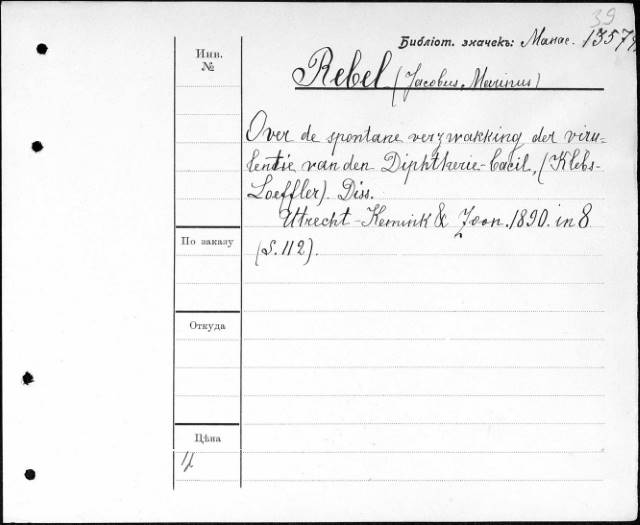 39
Библіот. значекъ: Манас. 1357
Инв.
№
Rebel (Jacobus, Marinus)
Over de spontane verzwakking der viru=
lentie van den Diphtherie-bacil, (Klebs-
Loeffler). Diss.
Utrecht-Kemink & Zoon. 1890. in 8
(S. 112).
По заказу
Откуда
Цѣна